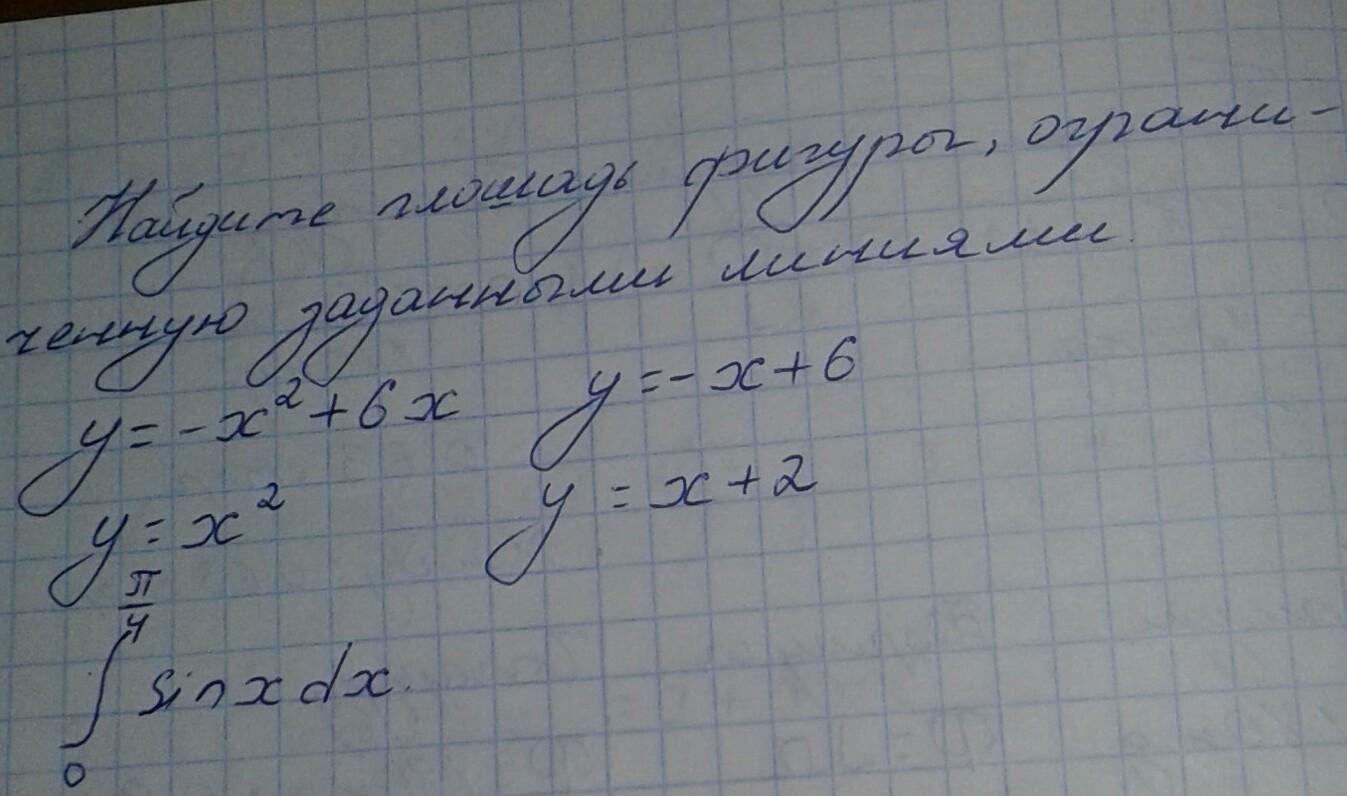 Найдите площадь фигуры, ограни-
ченную заданными линиями.
y=-x²+6x y=-x+6
y=x² y=x+2
∫₀^(π/4) sinxdx.